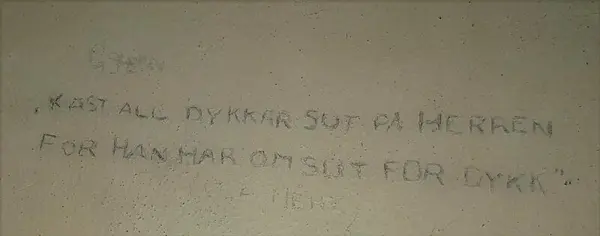 "KAST ALL DYKKAR SUT PÅ HERREN
FOR HAN HAR OMSUT FOR DYKK"